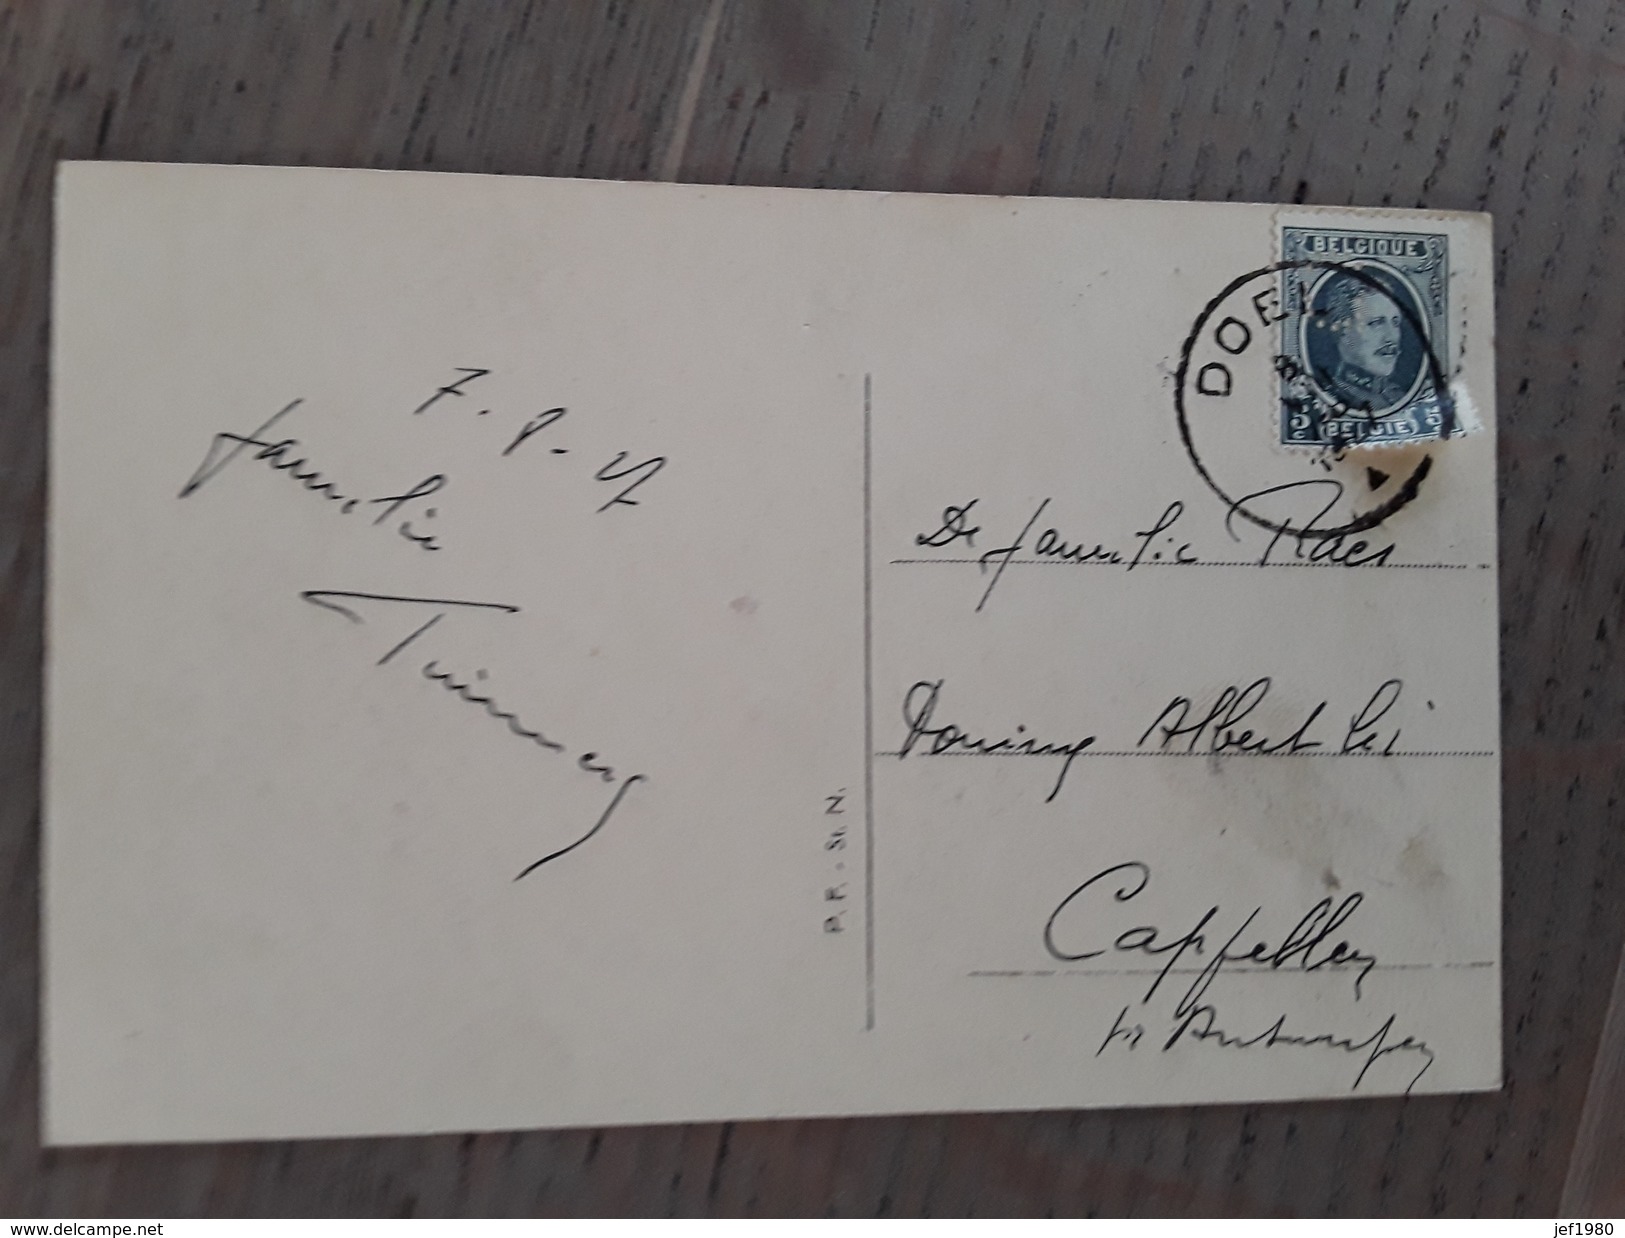 7-8-27
familie
BELGIQUE
DOEL
5 c (BELGIE) 5
De familie Raes
Koning Albert lei
Cappellen
br Antwerpen
P.F. - St. N.
www.delcampe.net
jef1980